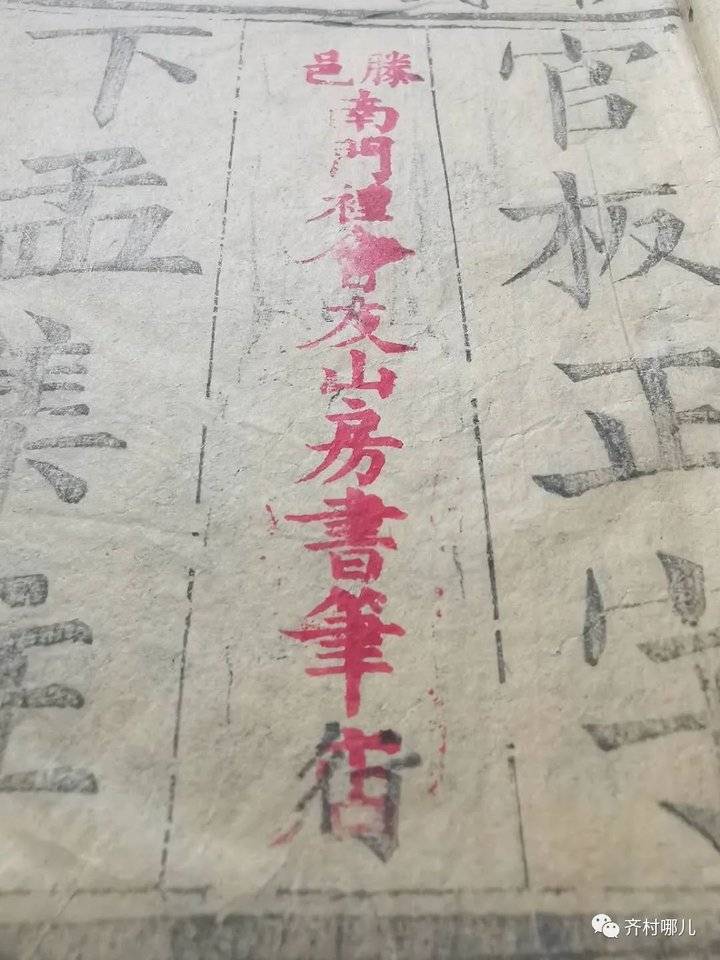 官板正字
滕邑
南門裡會友山房書筆店
行
下孟集
齐村哪儿